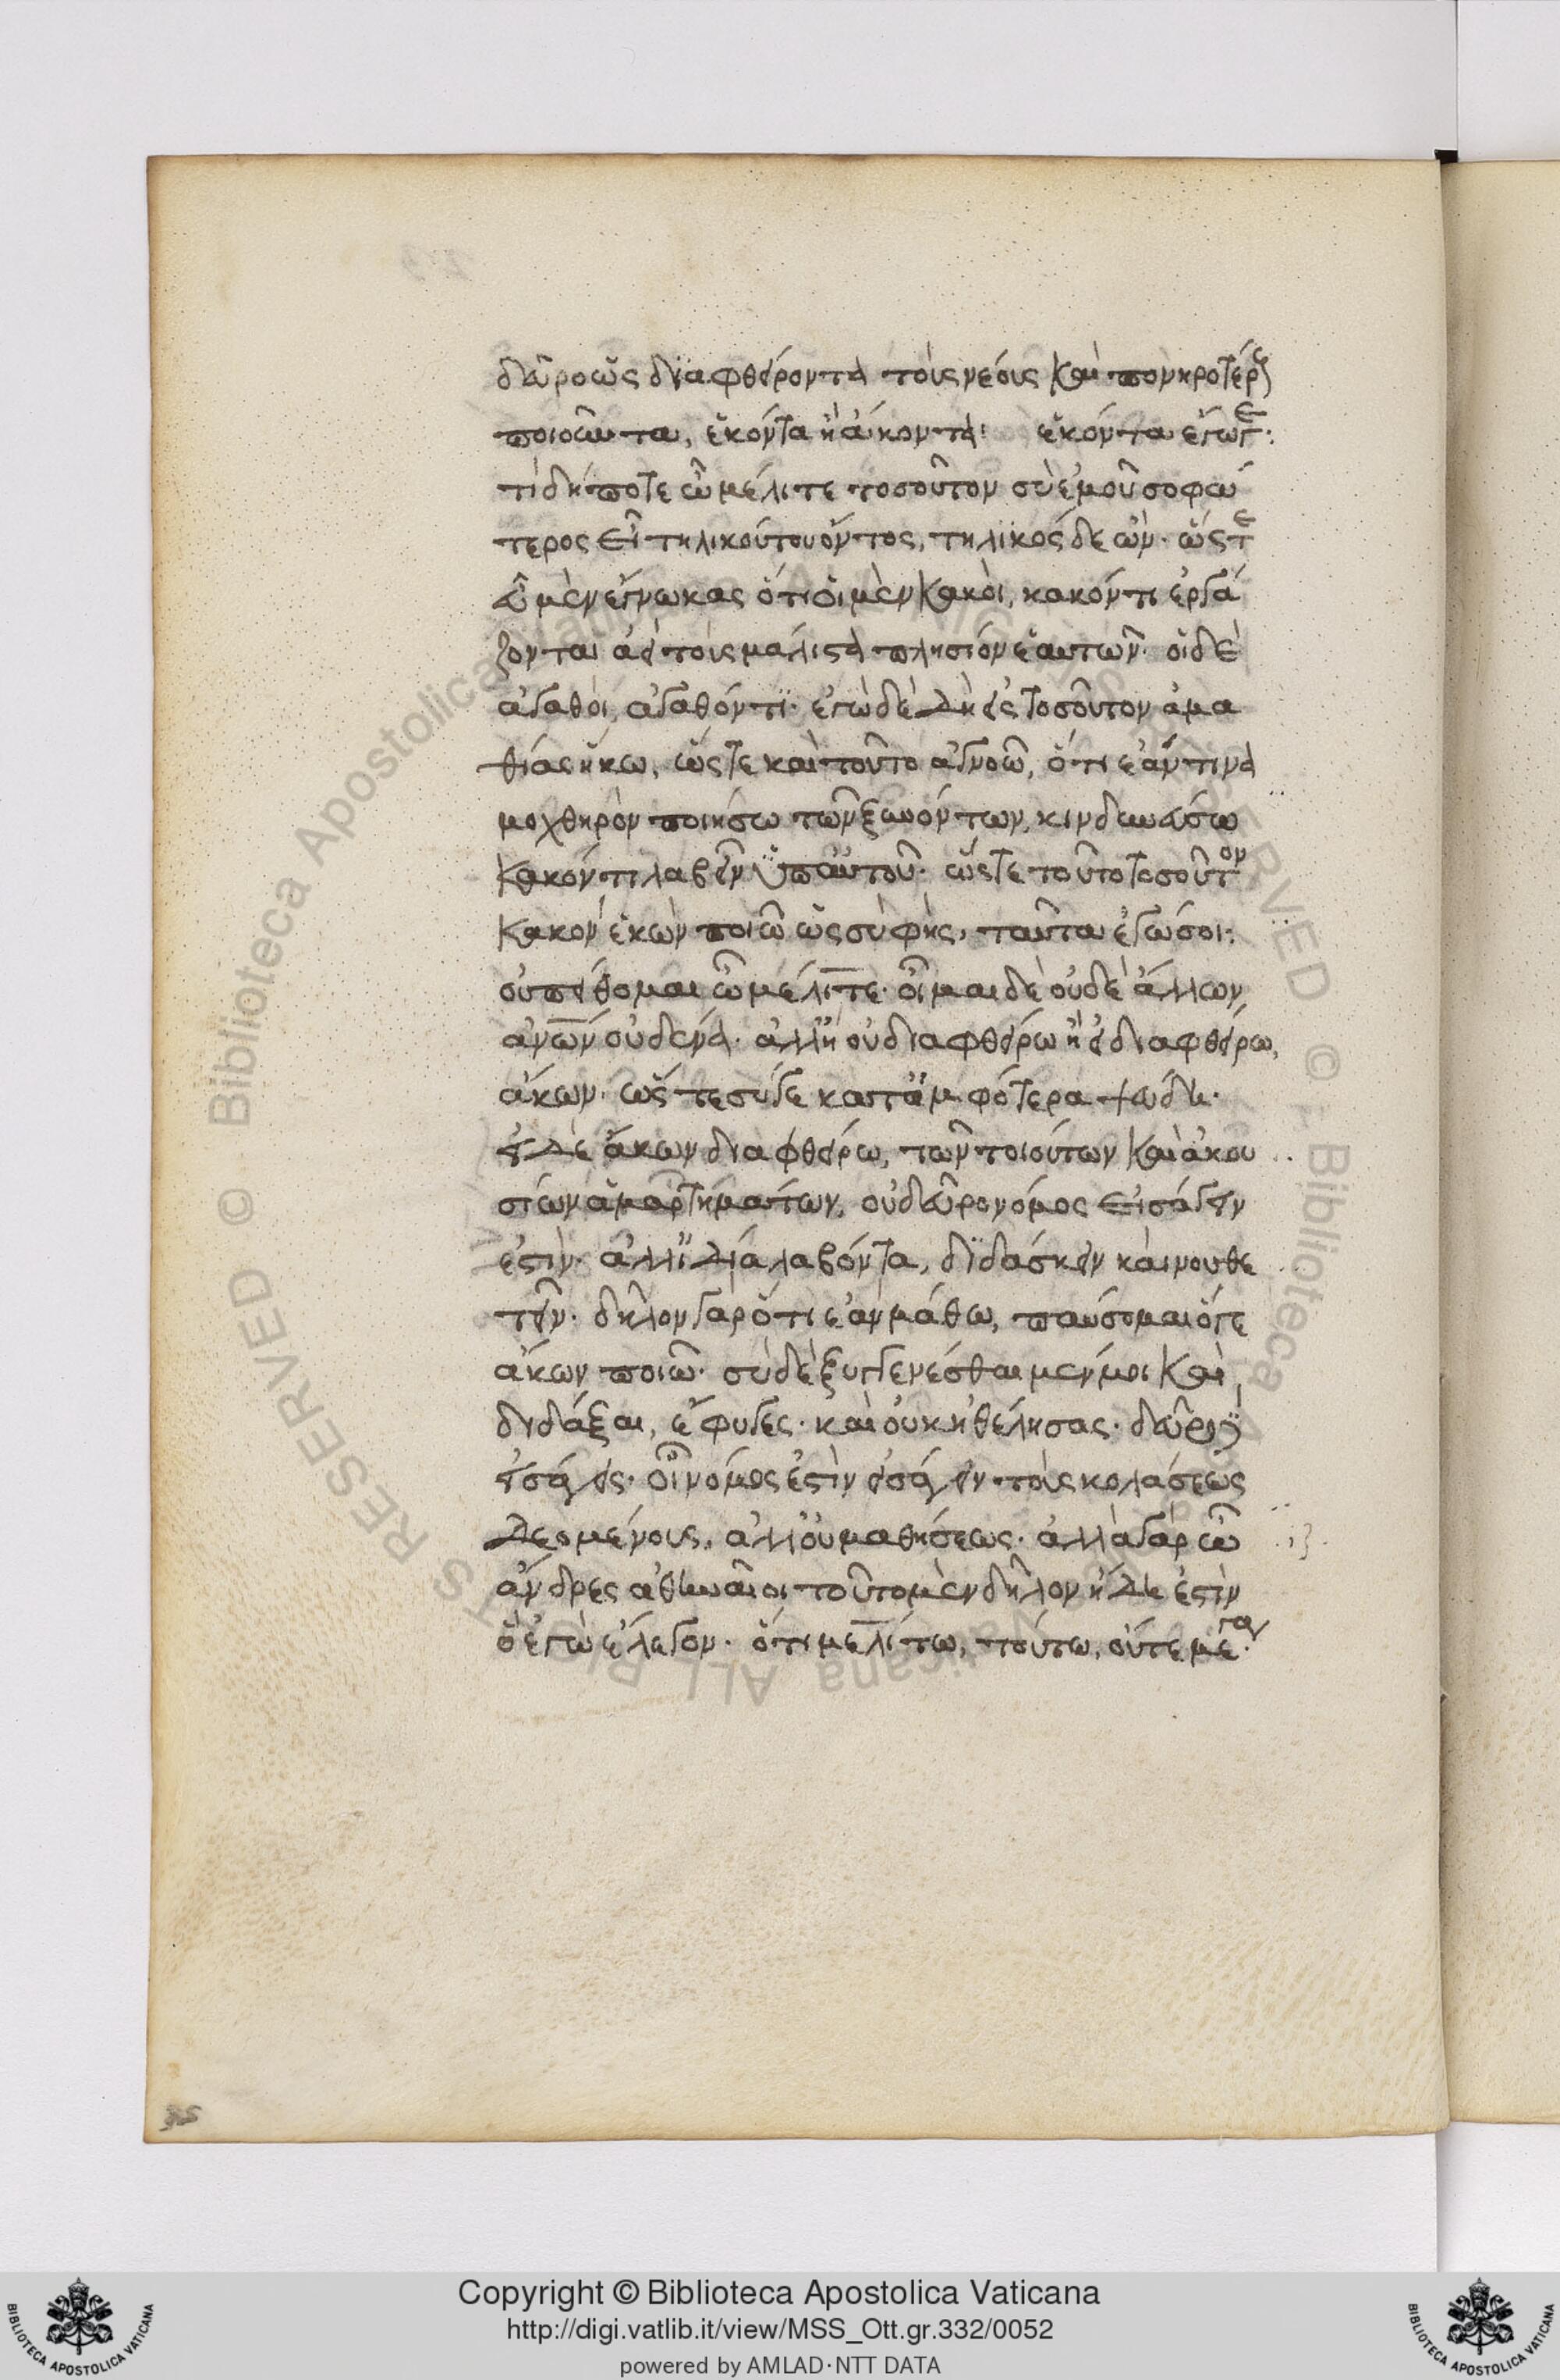 δεῦρο ὡς διαφθείροντα τοὺς νέους καὶ πονηροτέρους
ποιοῦντα, ἑκόντα ἢ ἄκοντα· ἑκόντα ἔγωγε:
τί δήποτε ὦ μέλιτε τοσοῦτον σὺ ἐμοῦ σοφώ
τερος εἶ τηλικούτου ὄντος, τηλικόσδε ὤν· ὥστε
σὺ μὲν ἔγνωκας ὅτι οἱ μὲν κακοὶ, κακόν τι ἐργά
ζονται ἀεὶ τοὺς μάλιστα πλησίον ἑαυτῶν· οἱ δὲ
ἀγαθοὶ, ἀγαθόν τι· ἐγὼ δὲ δὴ εἰς τοσοῦτον ἀμα
θίας ἥκω, ὥστε καὶ τοῦτο ἀγνοῶ, ὅτι ἐάν τινα
μοχθηρὸν ποιήσω τῶν ξυνόντων, κινδυνεύσω
κακόν τι λαβεῖν ὑπ' αὐτοῦ· ὥστε τοῦτο τοσοῦτον
κακὸν ἑκὼν ποιῶ ὡς σὺ φῆς, ταῦτα ἐγώ σοι·
οὐ πείθομαι ὦ μέλιτε· οἶμαι δὲ οὐδὲ ἄλλων
ἀνων οὐδένα· ἀλλ' ἢ οὐ διαφθείρω ἢ εἰ διαφθείρω,
ἄκων· ὥστε σύ γε κατ' ἀμφότερα ψεύδη·
εἰ δὲ ἄκων διαφθείρω, τῶν τοιούτων καὶ ἀκου
σίων ἁμαρτημάτων, οὐ δεῦρο νόμος εἰσάγειν
ἐστὶν· ἀλλ' ἰδία λαβόντα, διδάσκειν καὶ νουθε
τεῖν· δῆλον γὰρ ὅτι ἐὰν μάθω, παύσομαι ὅ γε
ἄκων ποιῶ· σὺ δὲ ξυγγενέσθαι μέν μοι καὶ
διδάξαι, ἔφυγες· καὶ οὐκ ἠθέλησας· δεῦρο δὲ
εἰσάγεις· οἷ νόμος ἐστὶν εἰσάγειν τοὺς κολάσεως
δεομένους, ἀλλ' οὐ μαθήσεως· ἀλλὰ γὰρ ὦ
ἄνδρες ἀθηναῖοι τοῦτο μὲν δῆλον ἤδη ἐστὶν
ὃ ἐγὼ ἔλεγον· ὅτι μελίτω, τούτω, οὔτε μέγα
35
Copyright © Biblioteca Apostolica Vaticana
http://digi.vatlib.it/view/MSS_Ott.gr.332/0052
powered by AMLAD·NTT DATA